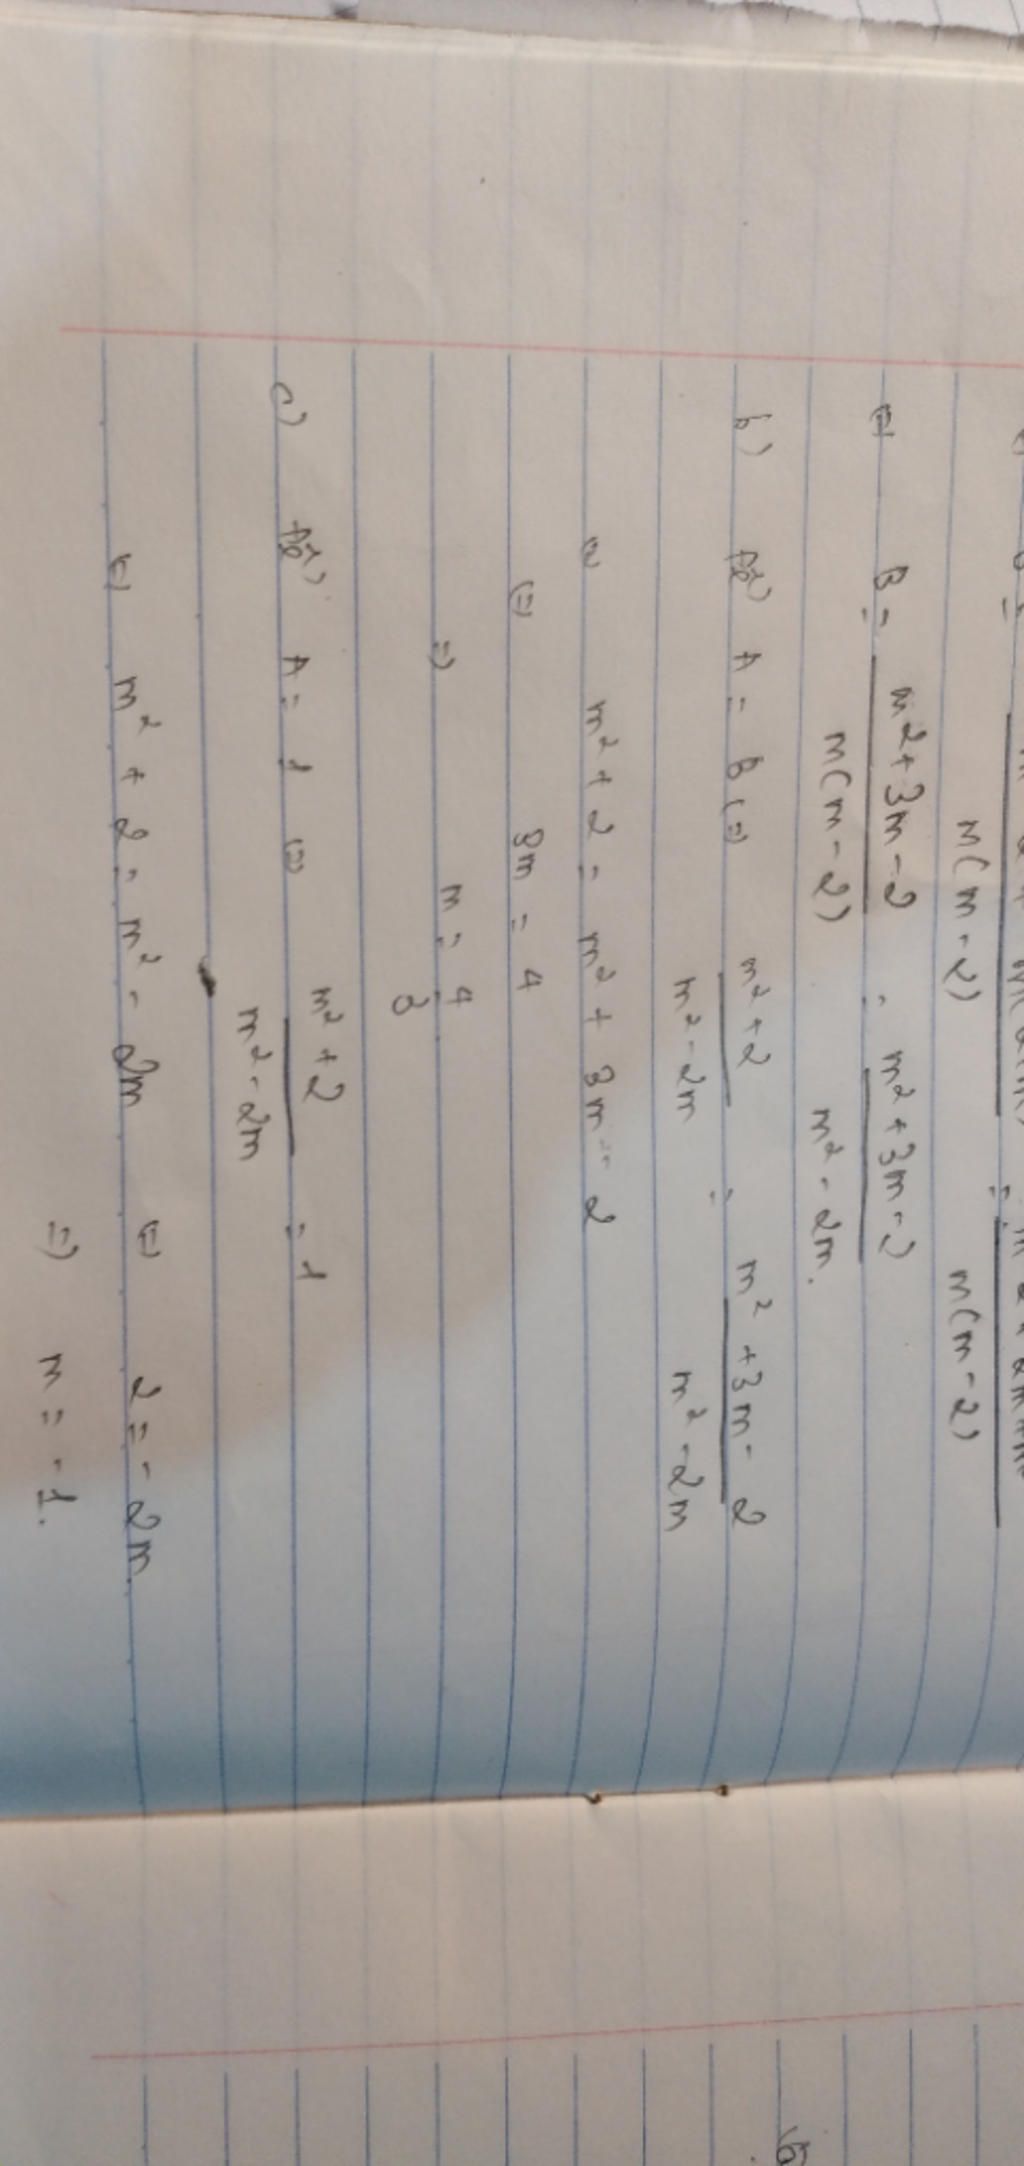 m(m-2) m(m-2)
(=) B = m²+3m-2 = m²+3m-2
m(m-2) m²-2m.
b) Để A = B (=) m²+2 = m²+3m-2
m²-2m m²-2m
(=) m²+2 = m²+3m-2
(=) 3m = 4
=) m = 4
3
c) Để A = 1 (=) m²+2 = 1
m²-2m
(=) m²+2 = m²-2m (=) 2 = -2m
=) m = -1.